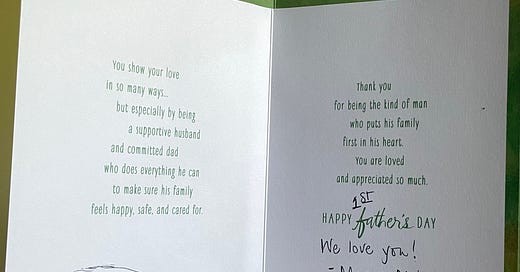 You show your love
in so many ways...
but especially by being
a supportive husband
and committed dad
who does everything he can
to make sure his family
feels happy, safe, and cared for.
Thank you
for being the kind of man
who puts his family
first in his heart.
You are loved
and appreciated so much.
1ST
HAPPY father's DAY
We love you!